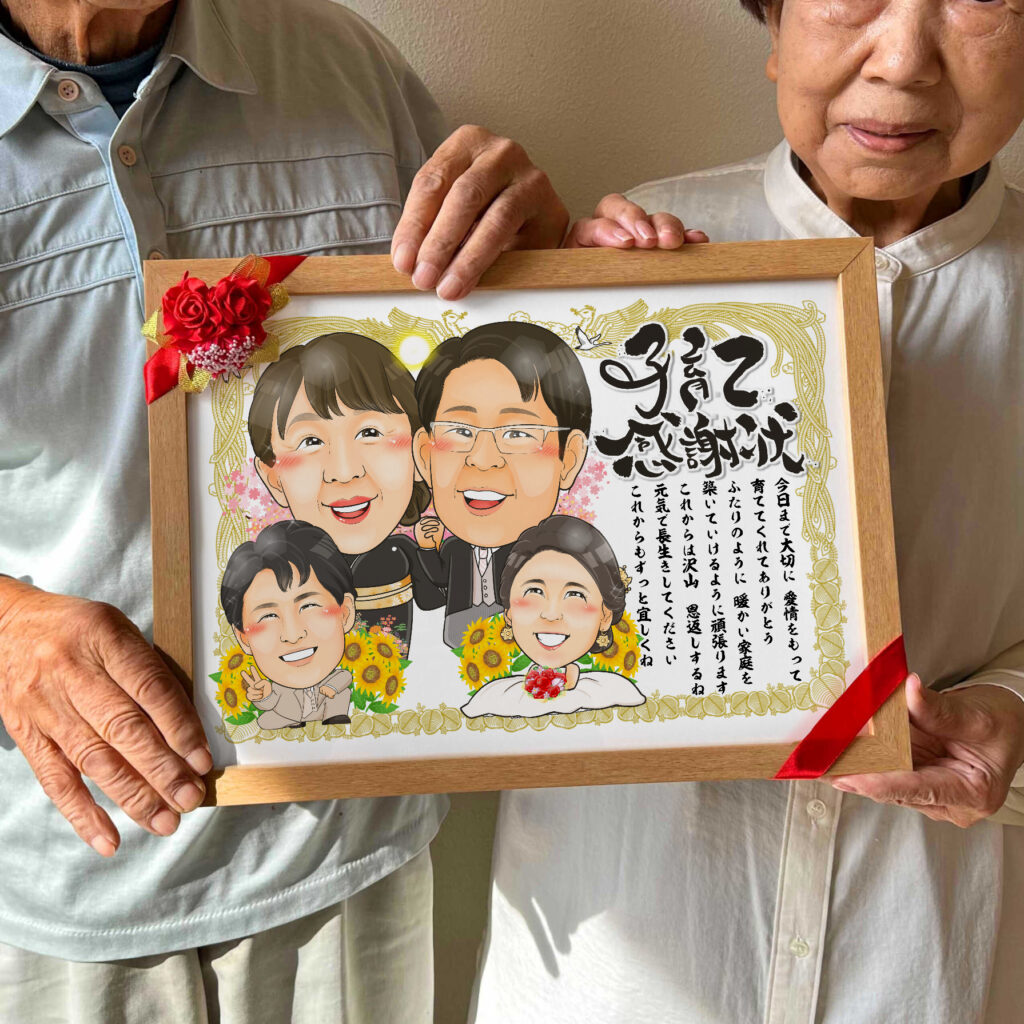 子育て
感謝状
今日まで大切に 愛情をもって
育ててくれてありがとう
ふたりのように 暖かい家庭を
築いていけるように頑張ります
これからは沢山 恩返しするね
元気で長生きしてください
これからもずっと宜しくね